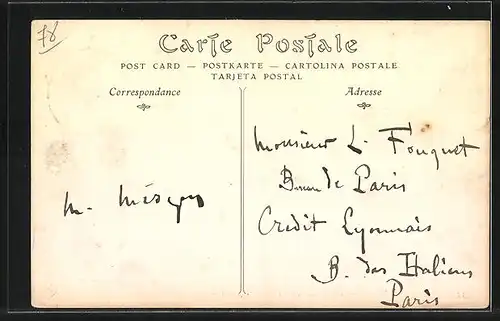 78
Carte Postale
POST CARD — POSTKARTE — CARTOLINA POSTALE
TARJETA POSTAL
Correspondance
Adresse
Monsieur L. Fouquet
de Paris
Credit Lyonnais
B. des Italiens
Paris
M.